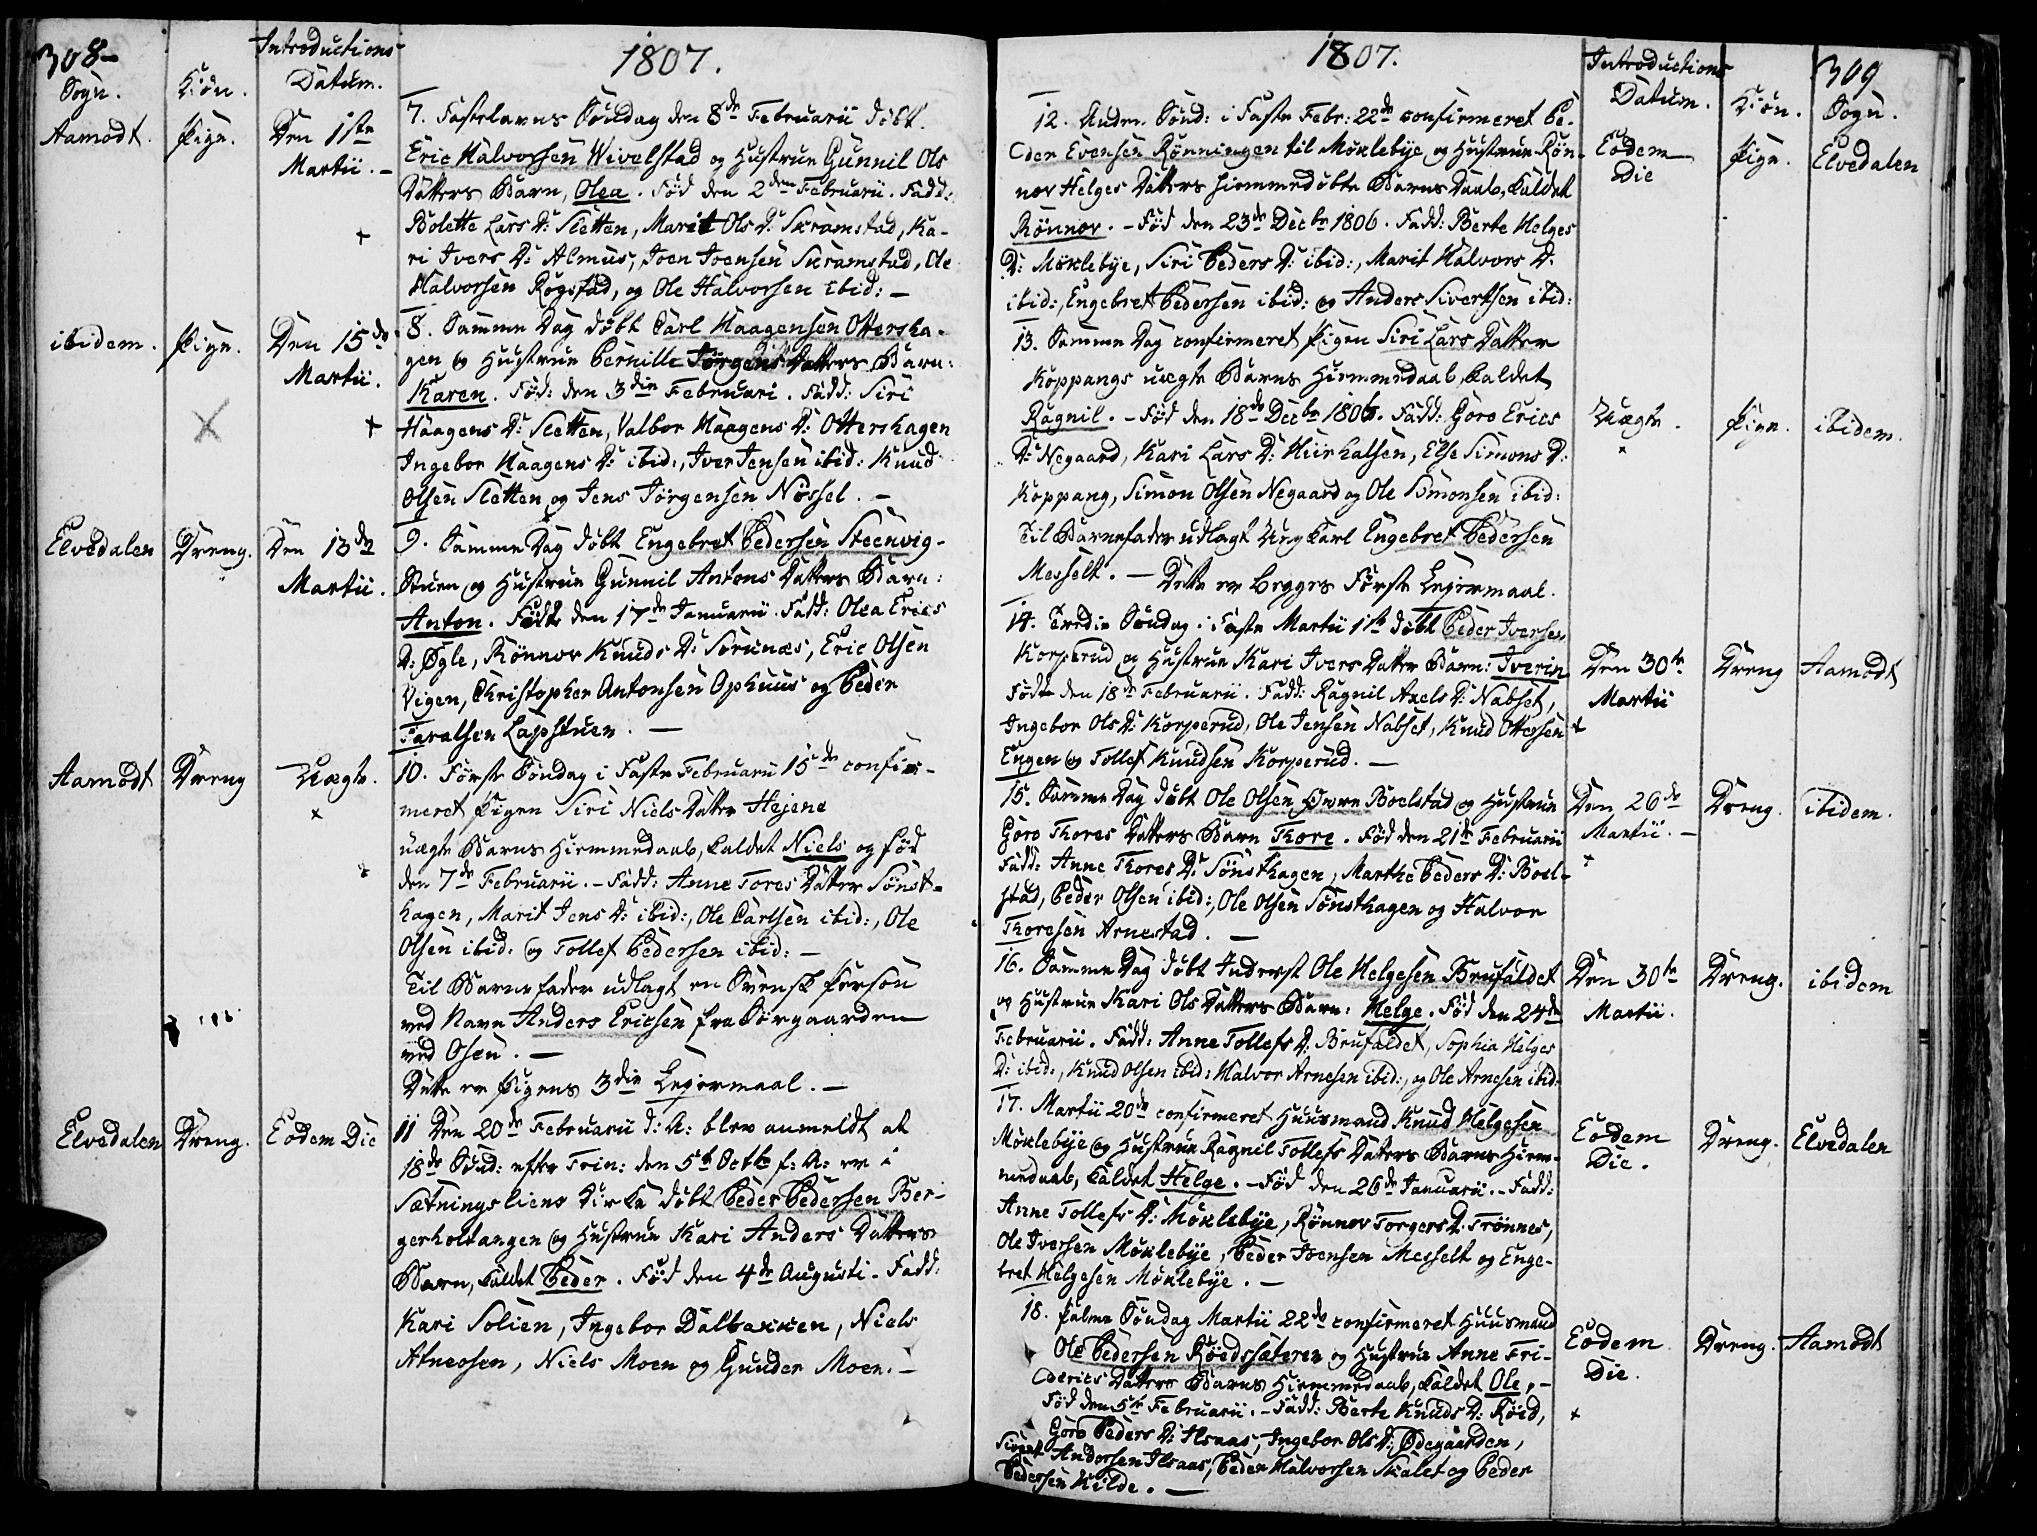 308
1807.
Sogn.
Kiøn.
Introductions
Datum.
Aamodt.
Pige.
Den 1ste
Martii. -
7. Fastelavns Søndag den 8de Februarii døbt.
Eric Halvorsen Wivelstad og Hustrue Gunnil Ols
Datters Barn, Olea. Fød den 2den Februarii. Fadd:
Bolette Lars D: Sletten, Marit Ols D: Skramstad, Ka-
ri Ivers D: Almus, Joen Joensen Skramstad, Ole
Halvorsen Rogstad, og Ole Halvorsen ibid: -
ibidem.
Pige.
Den 15de
Martii.
8. Samme Dag døbt Carl Haagensen Ottersha-
gen og Hustrue Pernille Jørgens Datters Barn:
Karen. Fød: den 3die Februari. Fadd: Siri
Haagens D: Sletten, Valbor Haagens D: Ottershagen
Ingebor Haagens D: ibid:, Iver Jensen ibid: Knud
Olsen Sletten og Jens Jørgensen Nøssel. -
Elvedalen
Dreng.
Den 13de
Martii.
9. Samme Dag døbt Engebret Pedersen Steenvig-
Stuen og Hustrue Gunnil Antons Datters Barn:
Anton. Født den 17de Januarii. Fadd: Olea Erics
D: Øgle, Rønnov Knuds D: Sorunæs, Eric Olsen
Vigen, Christopher Antonsen Ophuus og Peder
Taralsen Lapstuen. -
Aamodt
Dreng
Uægte.
10. Første Søndag i Faste Februarii 15de confir-
meret Pigen Siri Niels Datter Hejene
uægte Barns Hiemmedaab, kaldet Niels og fød
den 7de Februarii. - Fadd: Anne Tores Datter Sønst-
hagen, Marit Jens D: ibid:, Ole Carlsen ibid:, Ole
Olsen ibid: og Tollef Pedersen ibid: -
Til Barnefader udlagt en Svensk Person
ved Navn Anders Ericsen fra Sørgaarden
ved Osen. -
Dette er Pigens 3die Lejermaal. -
Elvedalen
Dreng.
Eodem Die
11 Den 20de Februarii d: A: blev anmeldt at
18de Sønd: efter Trin: den 5te Octb f: A: er i
Sætningsliens Kirke døbt Peder Pedersen Ber-
gerholtangen og Hustrue Kari Anders Datters
Barn, kaldet Peder. Fød den 4de Augusti. Fadd:
Kari Solien, Ingebor Dalbakken, Niels
Atneosen, Niels Moen og Gunder Moen. -
1807.
Introductions
Datum.
Kiøn.
309
Sogn.
12. Anden Sønd: i Faste Febr: 22de confirmeret Pe-
der Evensen Rønningen til Møklebye og Hustrue Røn-
nov Helges Datters hiemmedøbte Barns Daab, kaldet
Rønnov. - Fød den 23de Decbr 1806. Fadd: Berte Helges
D: Møklebye, Siri Peders D: ibid:, Marit Halvors D.
ibid:, Engebret Pedersen ibid: og Anders Sivertsen ibid:
Eodem
Die
Pige.
Elvedalen
13. Samme Dag confirmeret Pigen Siri Lars Datter
Koppangs uægte Barns Hiemmedaab, kaldet
Ragnil. - Fød den 18de Decbr 1806. Fadd: Goro Erics
D: Negaard, Kari Lars D: Hiirhalsen, Else Simons D:
Koppang, Simon Olsen Negaard og Ole Simonsen ibid:
Til Barnefader udlagt Ung Karl Engebret Pedersen
Messelt. - Dette er begges Første Lejermaal.
Uægte.
Pige.
ibidem.
14. Tredie Søndag i Faste Martii 1ste døbt Peder Iversen
Korperud og Hustrue Kari Ivers Datter Barn: Iverin
Født den 18de Februarii. Fadd: Ragnil Axels D: Nabset,
Ingebor Ols D: Korperud, Ole Jensen Nabset, Knud Ottersen
Engen og Tollef Knudsen Korperud. -
Den 30te
Martii
Dreng
Aamodt
15. Samme Dag døbt Ole Olsen Øvre Boelstad og Hustrue
Goro Thores Datters Barn Thore. Fød den 21de Februarii
Fadd: Anne Thores D: Sønsthagen, Marthe Peders D: Boel-
stad, Peder Olsen ibid:, Ole Olsen Sønsthagen og Halvor
Thoresen Arnestad. -
Den 26de
Martii. -
Dreng.
ibidem.
16. Samme Dag døbt Inderst Ole Helgesen Brufaldet
og Hustrue Kari Ols Datters Barn: Helge. Fød den 24de
Februarii. Fadd: Anne Tollefs D. Brufaldet, Sophia Helges
D: ibid:, Knud Olsen ibid: Halvor Arnesen ibid:, og Ole Arnesen ibid:
Den 30te
Martii.
Dreng.
ibidem
17. Martii 20de confirmeret Huusmand Knud Helgesen
Møklebye og Hustrue Ragnil Tollefs Datters Barns Hiem-
medaab, kaldet Helge. - Fød den 26de Januarii. - Fadd:
Anne Tollefs D: Møklebye, Rønnov Torgers D. Trønnes,
Ole Iversen Møklebye, Peder Joensen Messelt og Enge-
bret Helgesen Møklebye. -
Eodem
Die.
Dreng.
Elvedalen
18. Palme Søndag Martii 22de confirmeret Huusmand
Ole Pedersen Røedssæteren og Hustrue Anne Fri-
derics Datters Barns Hiemmedaab, kaldet Ole, -
Fød den 5te Februarii. - Fadd: Berte Knuds D: Røed,
Goro Peders D: Ilsaas, Ingebor Ols D: Ødegaarden,
Sivert Andersen Ilsaas, Peder Halvorsen Skalet og Peder
Pedersen Kilde. -
Eodem
Die.
Dreng.
Aamodt